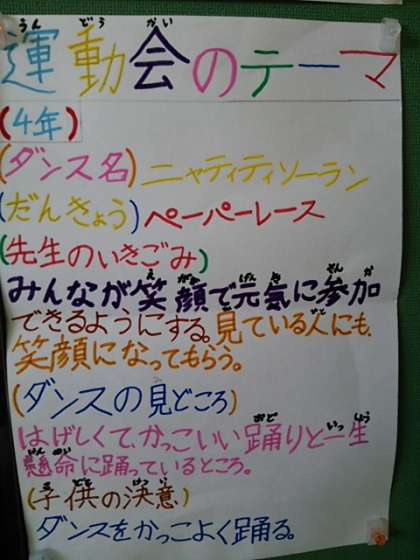 運動会のテーマ
(4年)
(ダンス名)ニャティティソーラン
(だんきょう)ペーパーレース
(先生のいきごみ)
みんなが笑顔で元気に参加
できるようにする。見ている人にも、
笑顔になってもらう。
(ダンスの見どころ)
はげしくて、かっこいい踊りと一生
懸命に踊っているところ。
(子供の決意)
ダンスをかっこよく踊る。